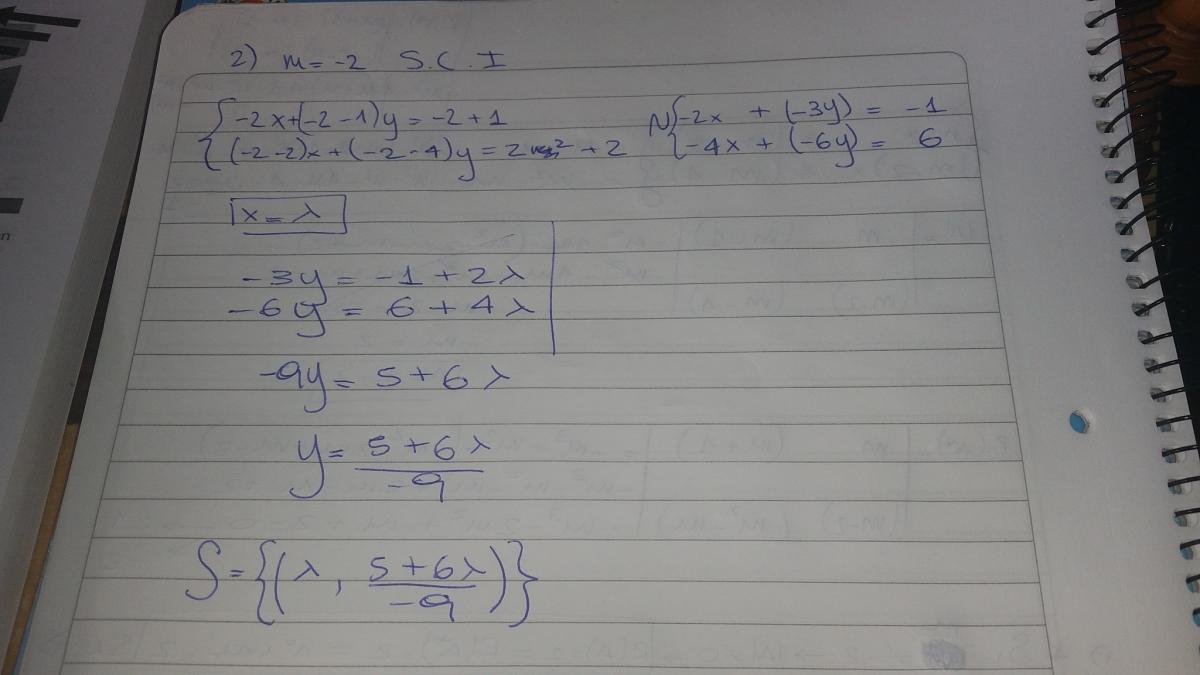 2) m = -2 S.C.I
{ -2x+(-2-1)y = -2+1 N { -2x + (-3y) = -1
{ (-2-2)x+(-2-4)y = 2 +2 { -4x + (-6y) = 6
x = λ
-3y = -1+2λ
-6y = 6+4λ
-9y = 5+6λ
y = 5+6λ / -9
S = {(λ, 5+6λ / -9)}